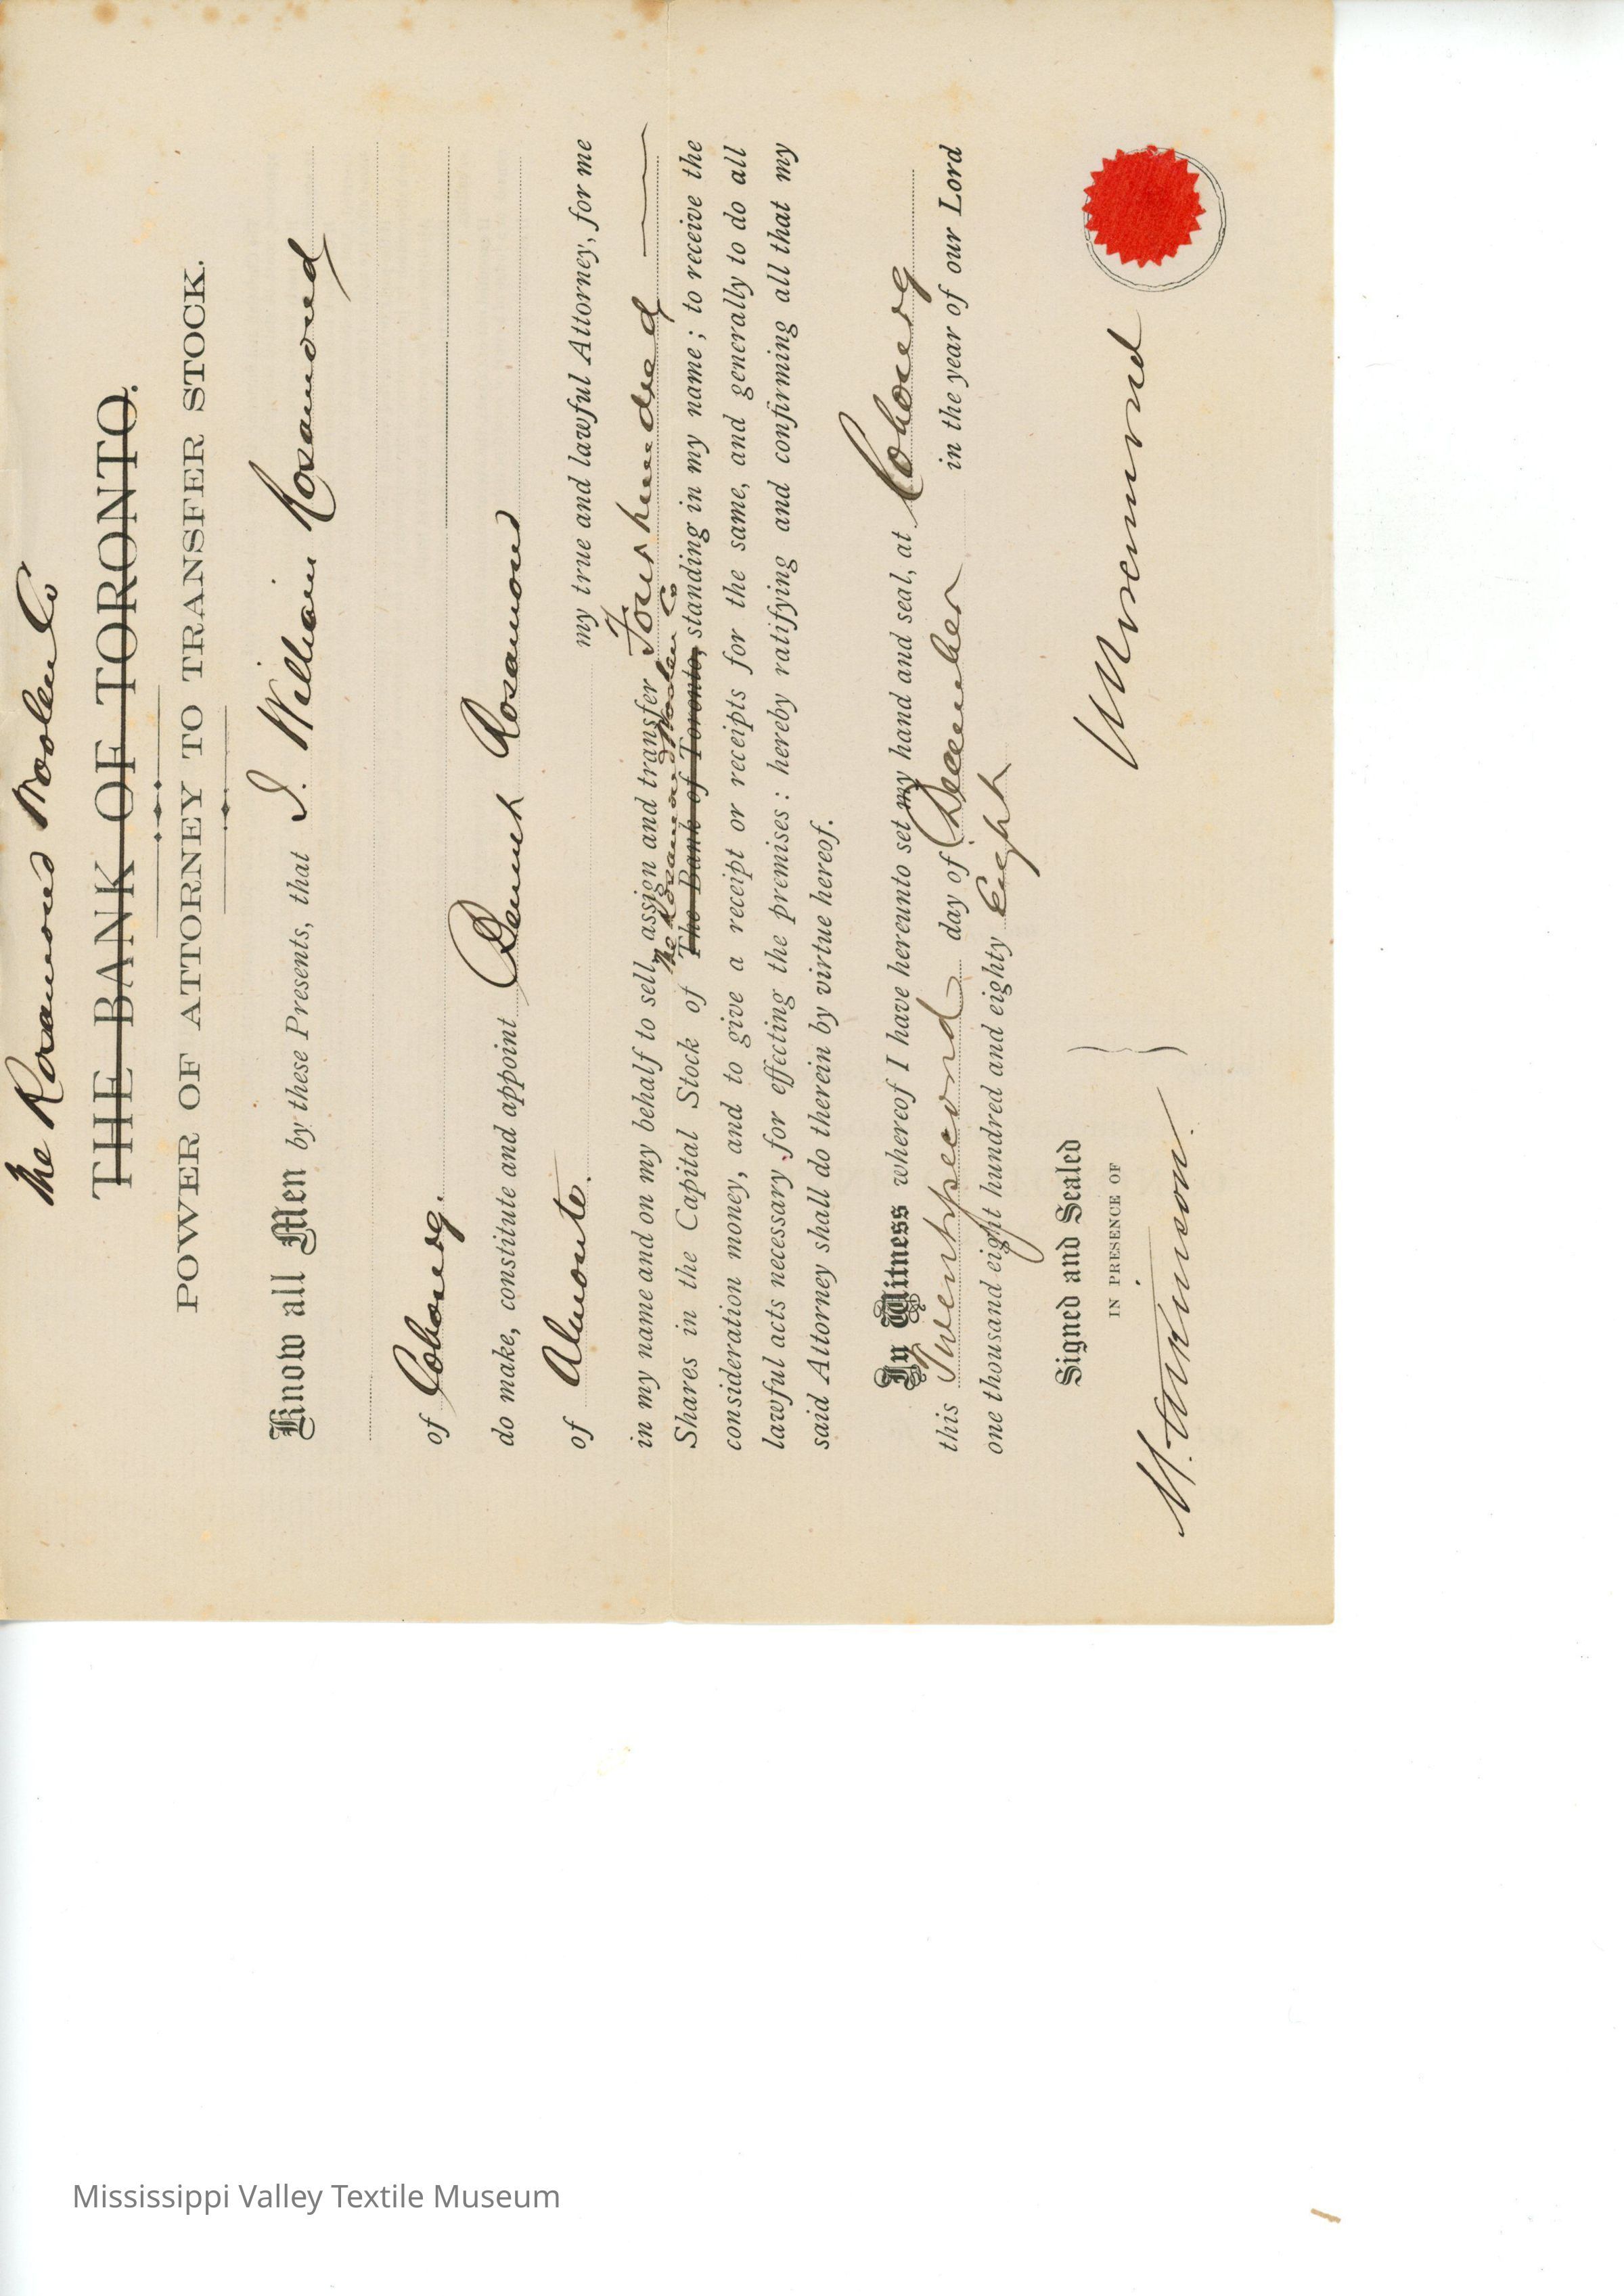 The Rosamond Woolen Co
THE BANK OF TORONTO.
POWER OF ATTORNEY TO TRANSFER STOCK.
Know all Men by these Presents, that I. William Rosamond
of Cobourg.
do make, constitute and appoint Bennett Rosamond
of Almonte. my true and lawful Attorney, for me
in my name and on my behalf to sell, assign and transfer Four hundred
The Rosamond Woolen Co
Shares in the Capital Stock of The Bank of Toronto, standing in my name; to receive the
consideration money, and to give a receipt or receipts for the same, and generally to do all
lawful acts necessary for effecting the premises: hereby ratifying and confirming all that my
said Attorney shall do therein by virtue hereof.
In Witness whereof I have hereunto set my hand and seal, at Cobourg
this Twentysecond day of December in the year of our Lord
one thousand eight hundred and eighty Eight
Signed and Sealed
IN PRESENCE OF
W Rosamond
Mississippi Valley Textile Museum